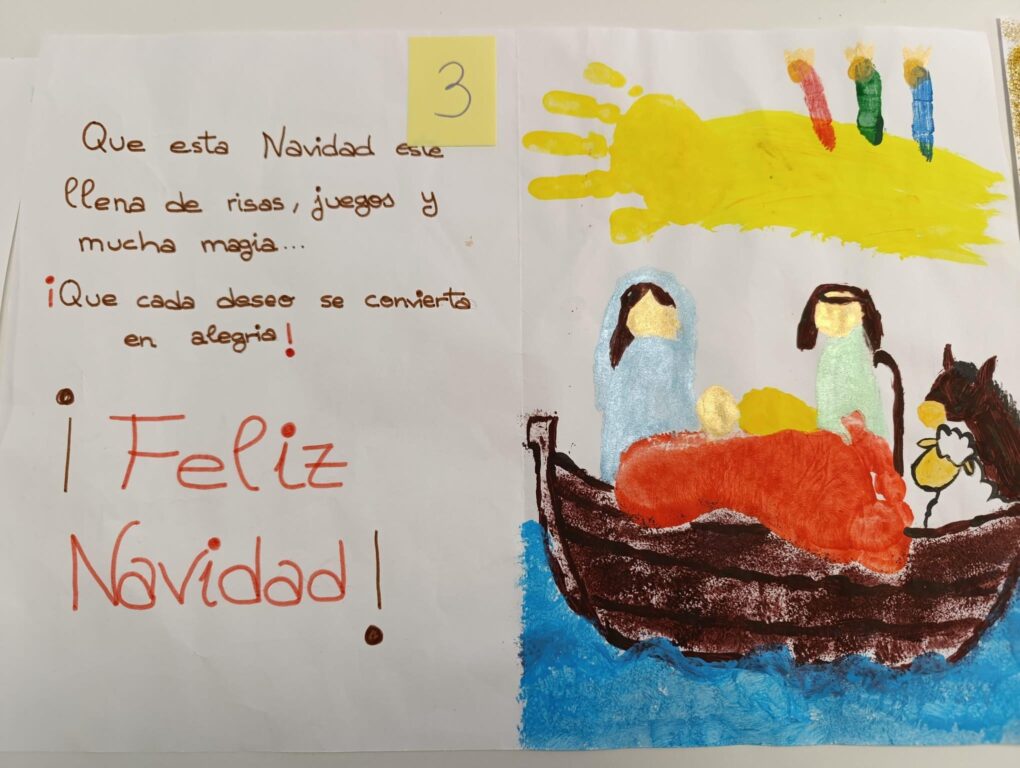 3
Que esta Navidad este
llena de risas, juegos y
mucha magia...
¡Que cada deseo se convierta
en alegria!
¡Feliz
Navidad!